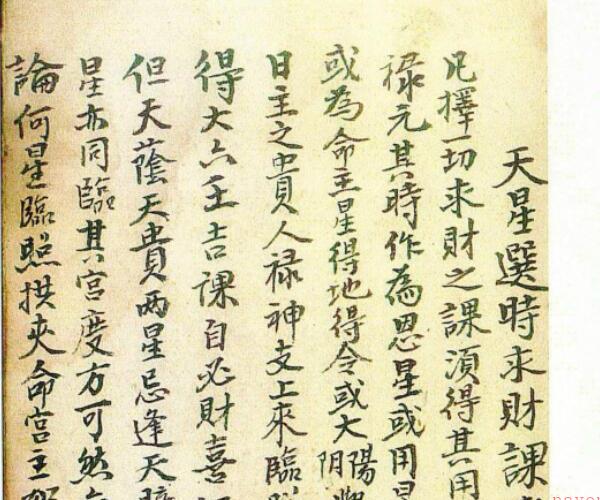 天星選時求財課
凡擇一切求財之課須得其用
祿元其時作為恩星或用星
或為命主星得地得令或大陽
日主之貴人祿神支上來臨
得大六壬吉課自必財喜
但天蔭天貴两星忌逢天
星亦同臨其宮度方可然
論何星臨照拱夾命宮主